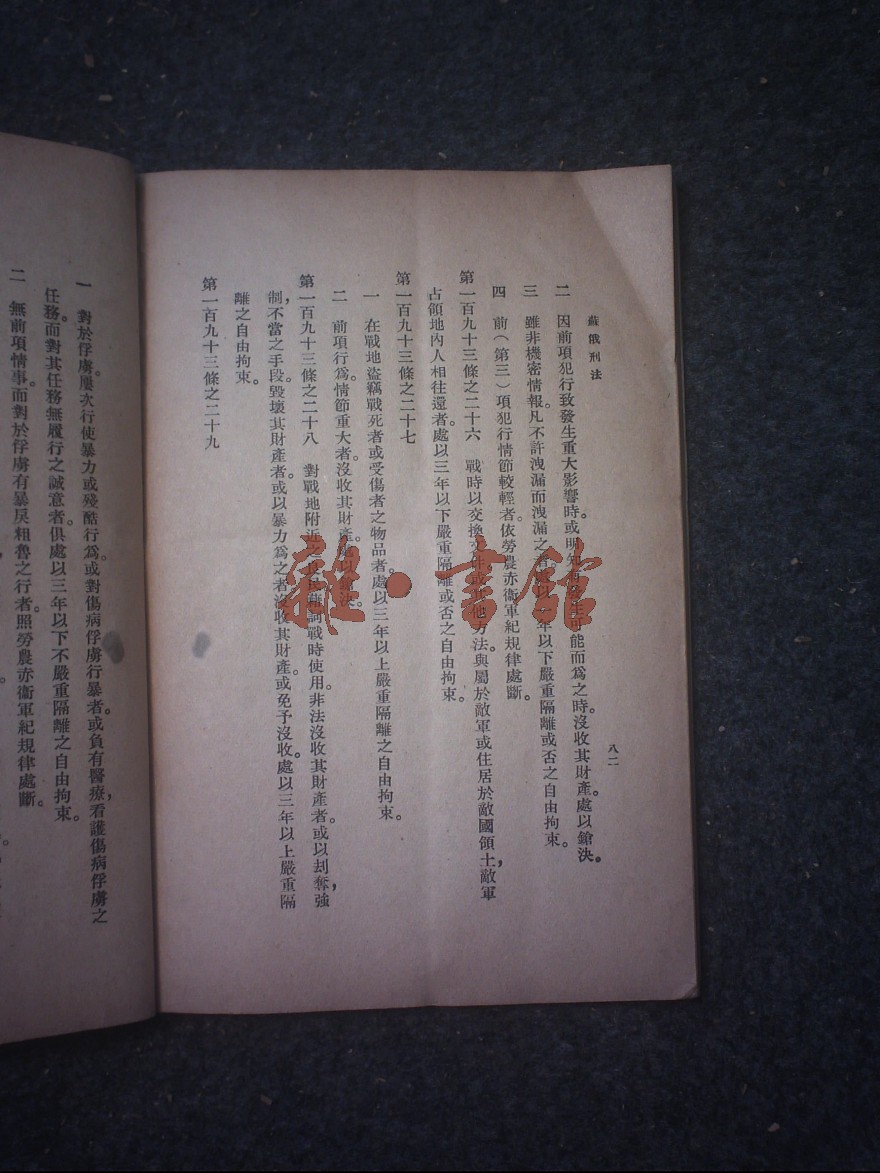 蘇俄刑法
八二
二　因前項犯行致發生重大影響時。或明知有發生可能而爲之時。沒收其財產。處以鎗決。
三　雖非機密情報。凡不許洩漏而洩漏之者。處以 年以下嚴重隔離或否之自由拘束。
四　前（第三）項犯行情節較輕者。依勞農赤衛軍紀規律處斷。
第一百九十三條之二十六　戰時以交換文件或其他方法。與屬於敵軍或住居於敵國領土，敵軍
占領地內人相往還者。處以三年以下嚴重隔離或否之自由拘束。
第一百九十三條之二十七
一　在戰地盜竊戰死者或受傷者之物品者。處以三年以上嚴重隔離之自由拘束。
二　前項行爲。情節重大者。沒收其財產。處以鎗決。
第一百九十三條之二十八　對戰地附近之住民。藉詞戰時使用。非法沒收其財產者。或以刦奪，強
制，不當之手段。毀壞其財產者。或以暴力爲之者。沒收其財產。或免予沒收。處以三年以上嚴重隔
離之自由拘束。
第一百九十三條之二十九
一　對於俘虜屢次行使暴力或殘酷行爲。或對傷病俘虜行暴者。或負有醫療看護傷病俘虜之
任務。而對其任務無履行之誠意者。俱處以三年以下不嚴重隔離之自由拘束。
二　無前項情事。而對於俘虜有暴戾粗魯之行者。照勞農赤衛軍紀規律處斷。
雜·書館